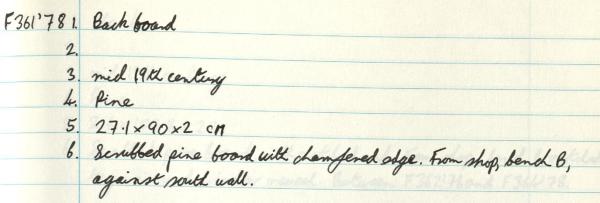 F361'78 1. Back board
2.
3. mid 19th century
4. Pine
5. 27.1 x 90 x 2 cm
6. Scrubbed pine board with chamfered edge. From shop, bench B,
against south wall.